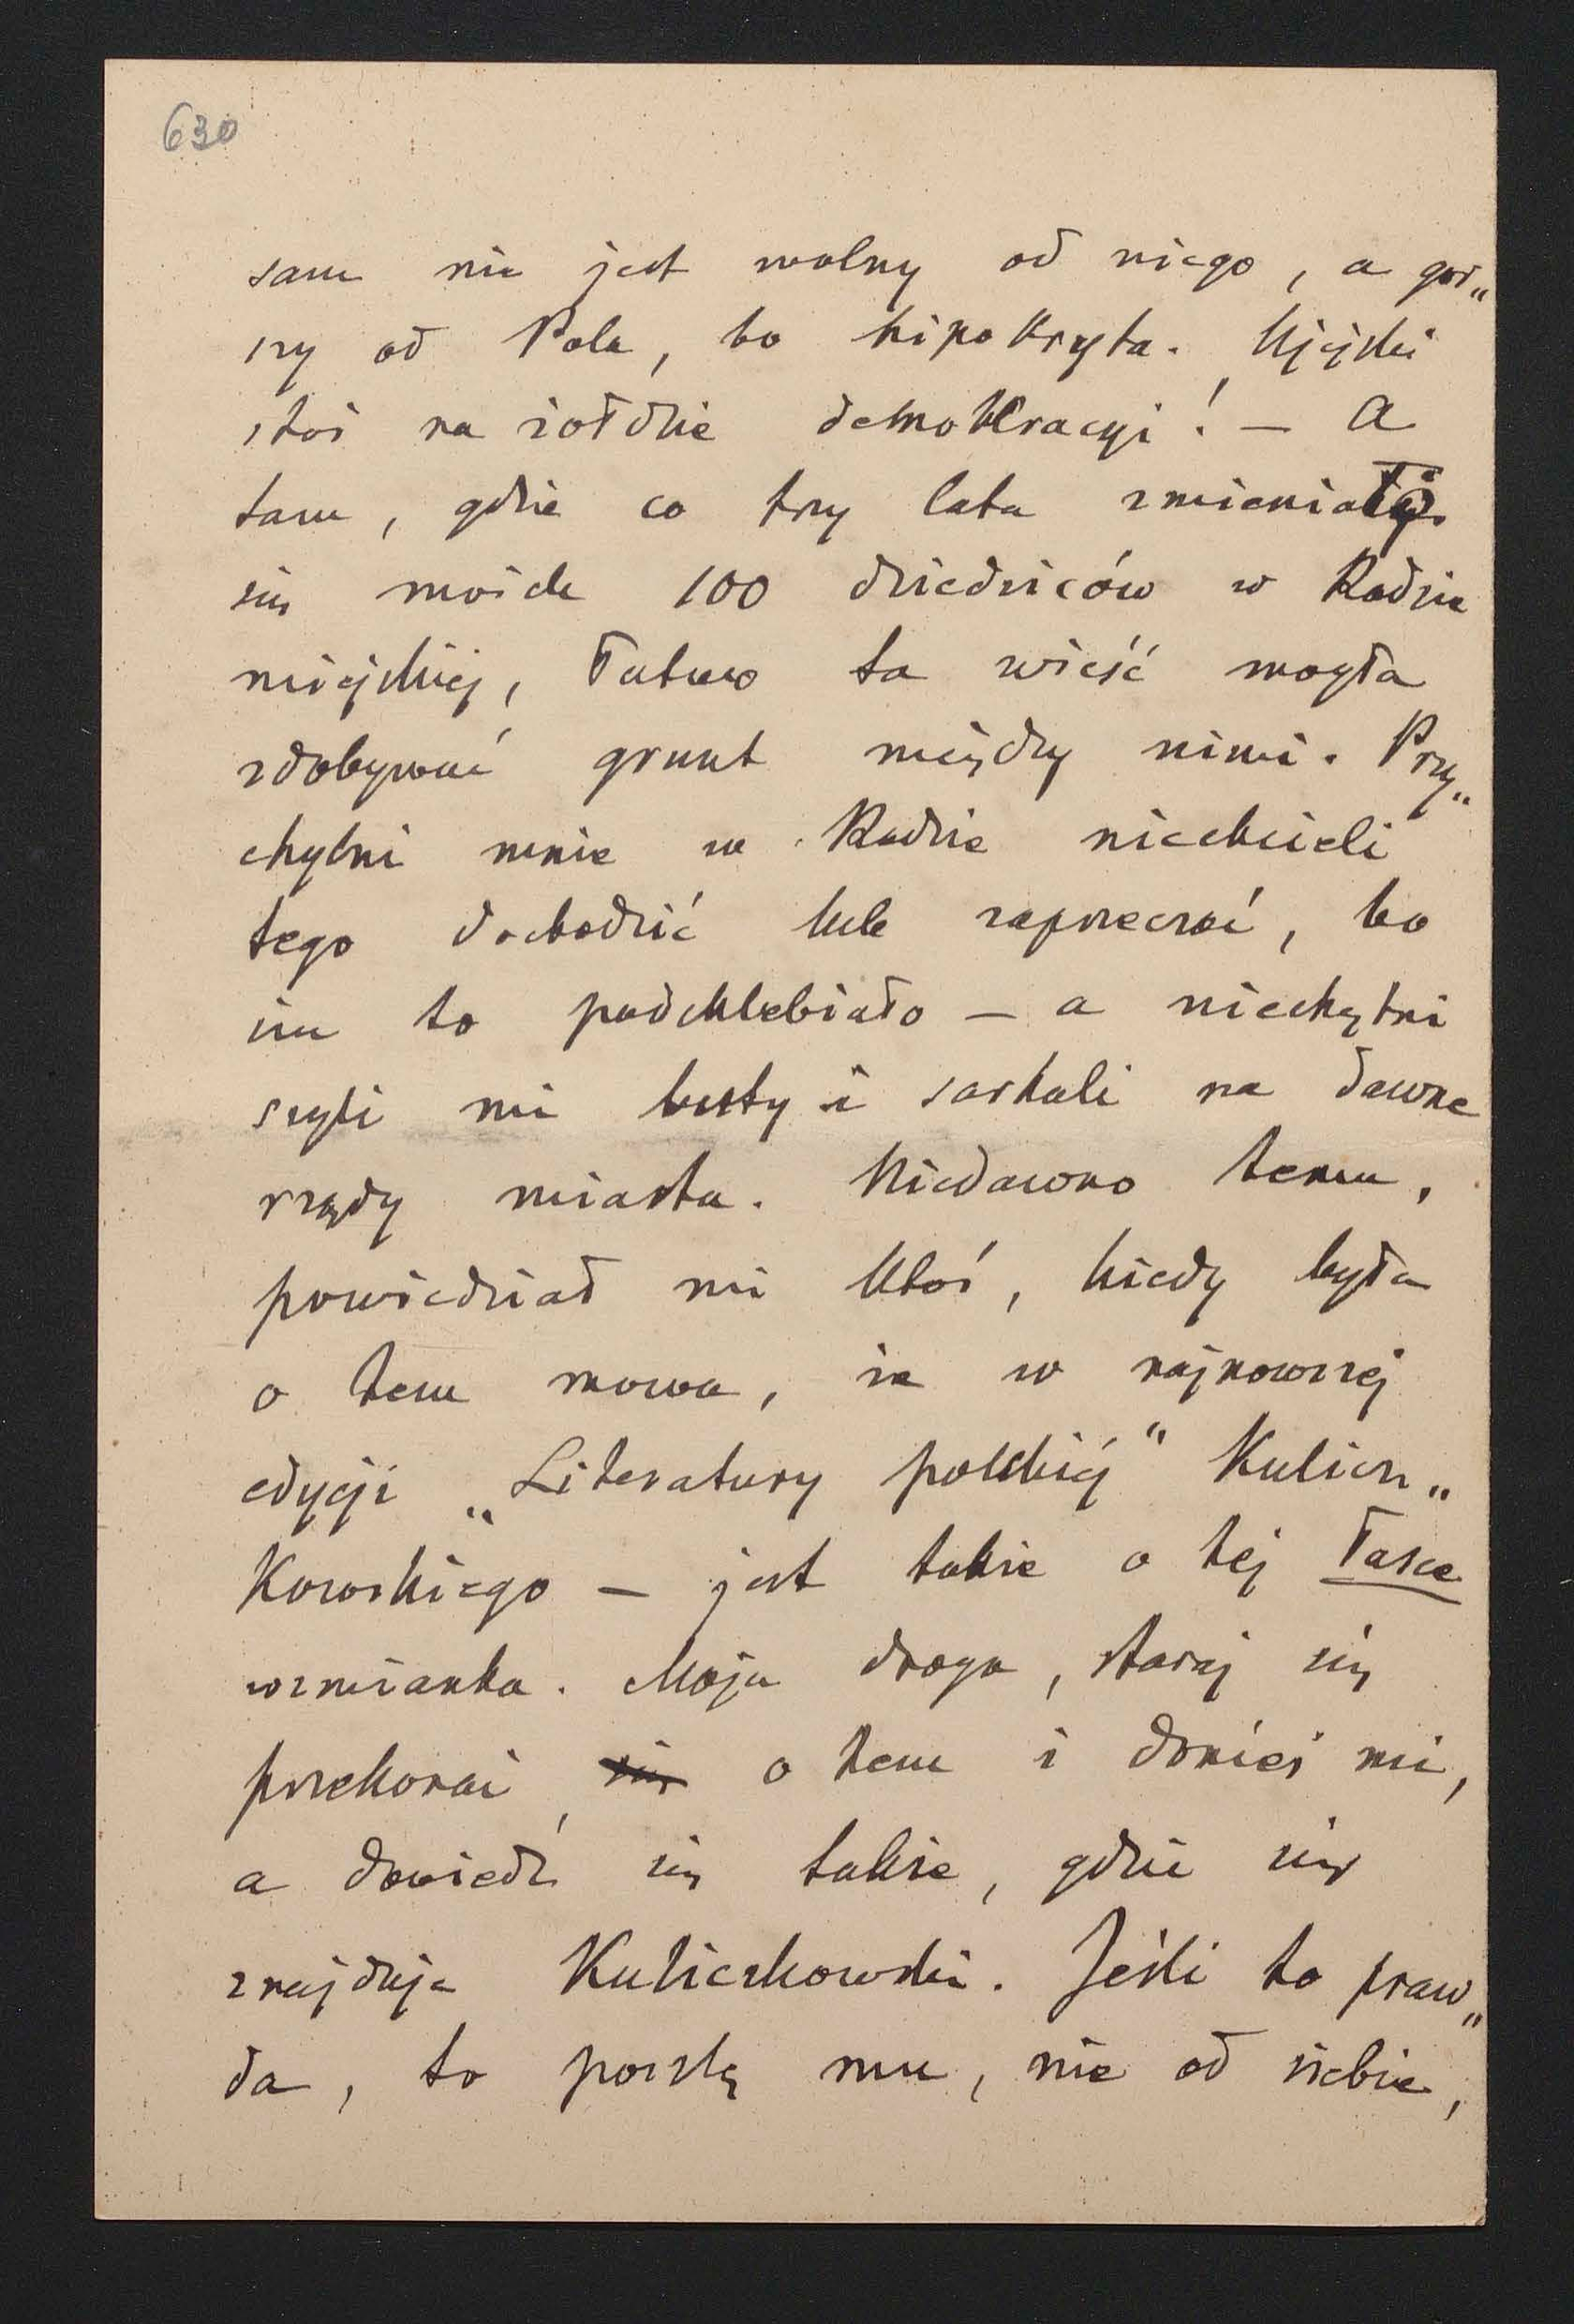 630
sam nie jest wolny od niego, a gor„
szy od Pola, bo hipokryta. Ujejski
stoi na żołdzie demokracyi! — A
tam, gdzie co trzy lata zmieniało
się może 100 dziedziców w Radzie
miejskiej, łatwo ta wieść mogła
zdobywać grunt między nimi. Przy„
chylni mnie w Radzie niechcieli
tego dochodzić lub zaprzeczać, bo
im to podchlebiało — a niechętni
szyli mi buty i sarkali na dawne
rządy miasta. Niedawno temu,
powiedział mi ktoś, kiedy była
o tem mowa, że w najnowszej
edycji „Literatury polskiej" Kulicz„
kowskiego — jest także o tej łasce
wzmianka. Moja droga, staraj się
przekonać, się o tem i donieś mi,
a dowiedz się także, gdzie się
znajduje Kuliczkowski. Jeśli to praw„
da, to poszlę mu, nie od siebie,